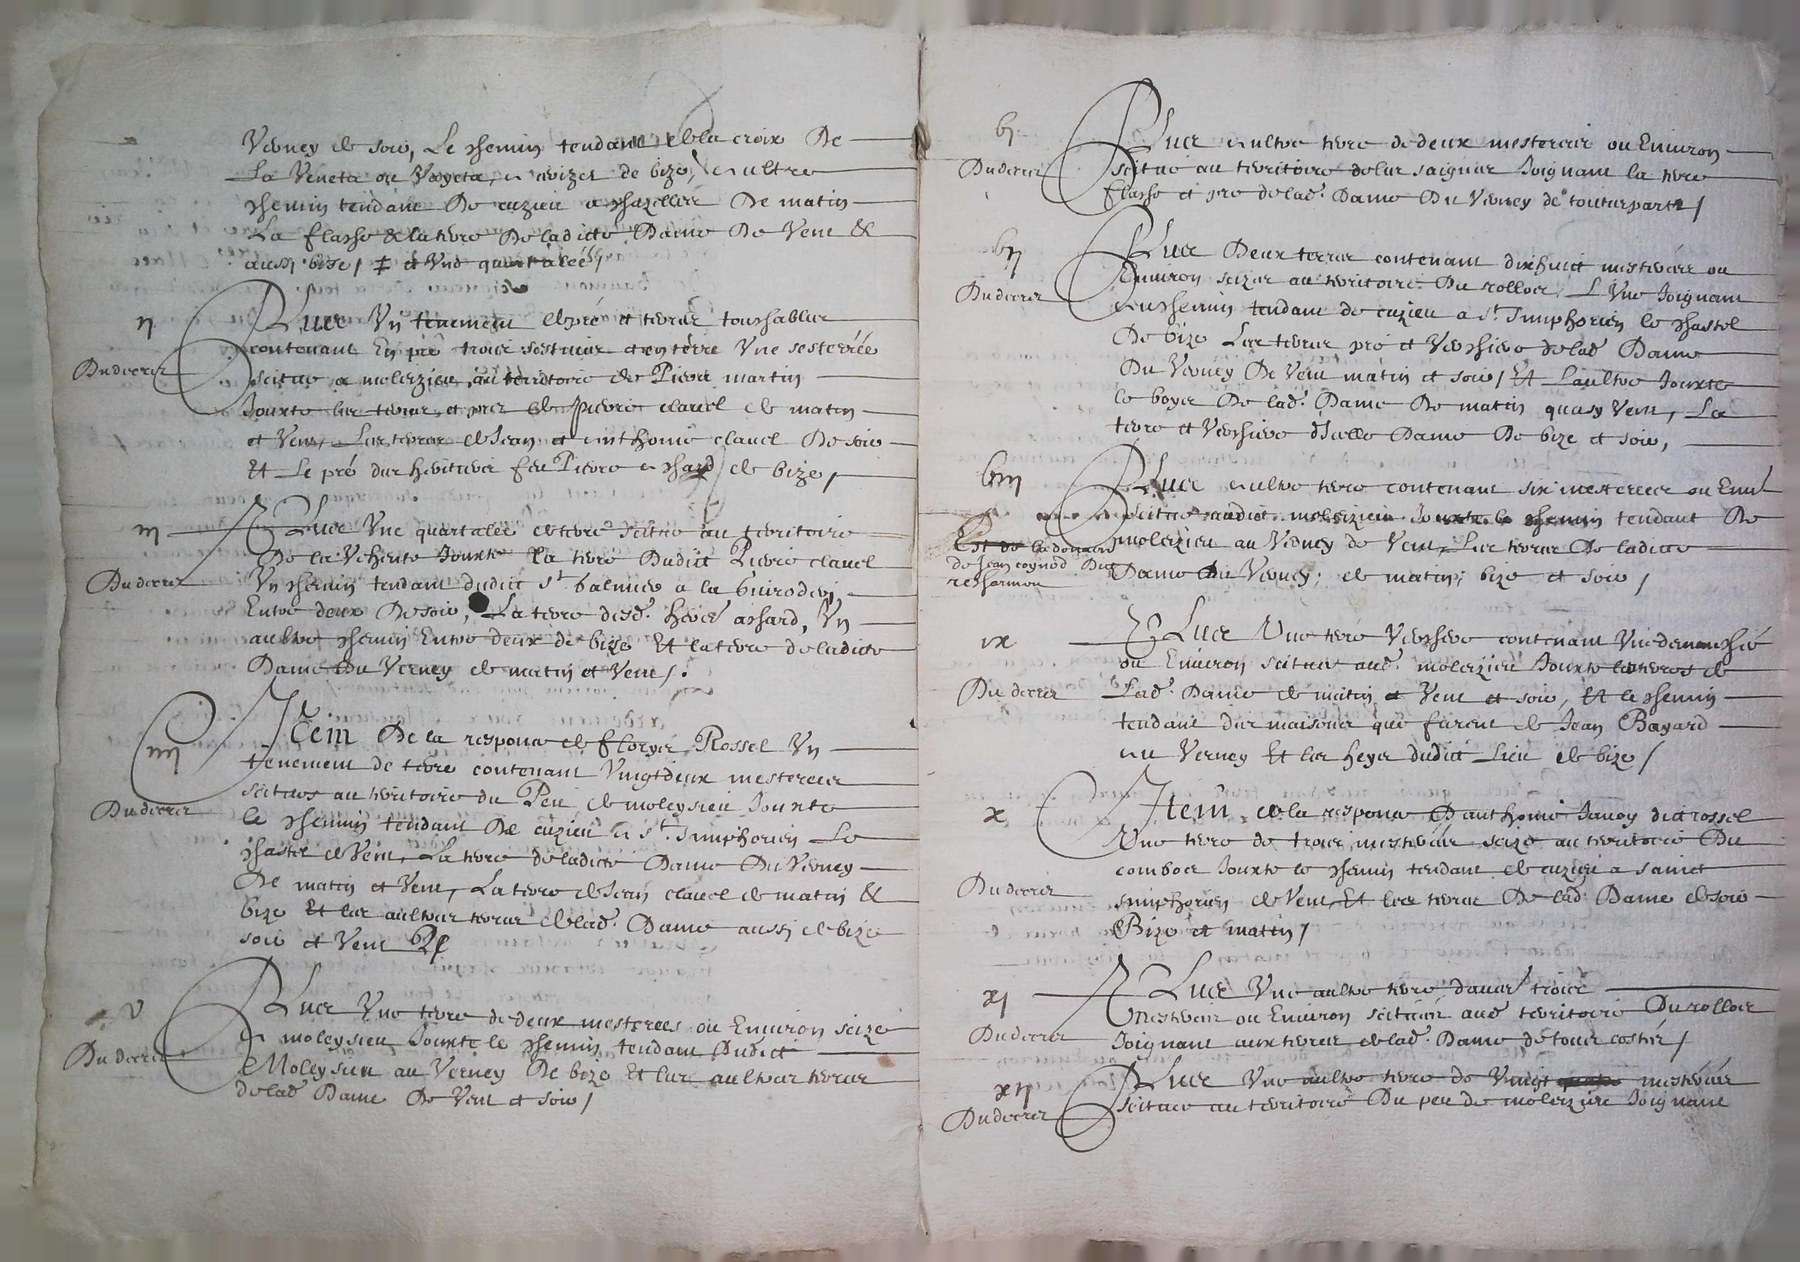 Verney de soir, Le chemin tendant de la croix De
La Veneta ou Voyeta, a vizet de bize, en aultre
chemin tendant De cuzieu a chazelles De matin
La classe & la terre De ladicte Dame De Vent &
aussi bize / et Une quartalée /
ij
Plus Un tenement de pré et terres touchables
contenant En pré trois sestiers et en terre Une sesterée
Du dexer
scitue a moleizieu, au territoire de Pierre martin
Jouxte les terres et prez de Pierre clauel de matin
et Vent, Les terres de Jean et anthoine clauel De soir
Et Le pré des heritiers feu Pierre achard de bize /
iij
Plus Une quartalée de terre scitue au territoire
De la Jouxte la terre Dudict Pierre clauel
Du dexer
Un chemin tendant dudict St balmier a la
Entre deux De soir, La terre desd. hoirs achard, Un
aultre chemin Entre deux de bize Et la terre de ladicte
Dame Du Verney de matin et Vent /.
iiij
Item De la responce de Rossel Un
tenement de terre contenant Vingt deux mesterées
Du dexer
scitues au territoire du Peu de moleysieu Jouxte
le chemin tendant De cuzieu a St. Simphorien Le
chastel de Vent, La terre de ladicte Dame Du Verney
De matin et Vent, La terre de Jean clauel de matin &
bize Et les aultres terres de lad. Dame aussi de bize
soir et Vent
v
Plus Une terre de deux mesterées ou Enuiron scize
a moleysieu Jouxte le chemin tendant Dudict
Du dexer
Moleysieu au Verney De bize Et les aultres terres
de lad. Dame De Vent et soir /
vj
Plus aultre terre de deux mesterées ou Enuiron
Du dexer
scitue au territoire de la saignes Joignant la terre
classe et pré de lad. Dame Du Verney de toutes parts /
vij
Plus Deux terres contenant dixhuict mesterées ou
Du dexer
Enuiron scizes au territoire Du rolloer, L'Une Joignant
au chemin tendant de cuzieu a St. Simphorien le chastel
De bize Les terres pré et Verchiere de lad. Dame
Du Verney De Vent matin et soir / Et L'aultre Jouxte
le boyer De lad. Dame De matin quasy Vent, La
terre et Verchiere d'Icelle Dame De bize et soir,
viij
Plus aultre terre contenant six mesterées ou
scitue audict moleizieu Jouxte le chemin tendant De
moleizieu au Verney de Vent, Les terres De ladicte
Dame Du Verney; de matin; bize et soir /
ix
Plus Une terre Verchere contenant
ou Enuiron scitue aud. moleizieu Jouxte les terres de
Du dexer
Lad. Dame de matin et Vent et soir, Et le chemin
tendant des maisons que furent de Jean Bayard
au Verney Et les heyes dudict Lieu de bize /
x
Item de la responce D'anthoine Janoy dict rossel
Une terre de trois mesterées scize au territoire Du
comboer Jouxte le chemin tendant de cuzieu a sainct
Du dexer
simphorien de Vent, Et les terres De lad. Dame de soir
Bize et matin /
xj
Plus Une aultre terre trois
mesterées ou Enuiron scitue aud. territoire Du rolloer
Du dexer
Joignant aux terres de lad. Dame de tous costés /
xij
Plus Une aultre terre de Vingt mesterées
Du dexer
scitue au territoire Du peu de moleizieu Joignant